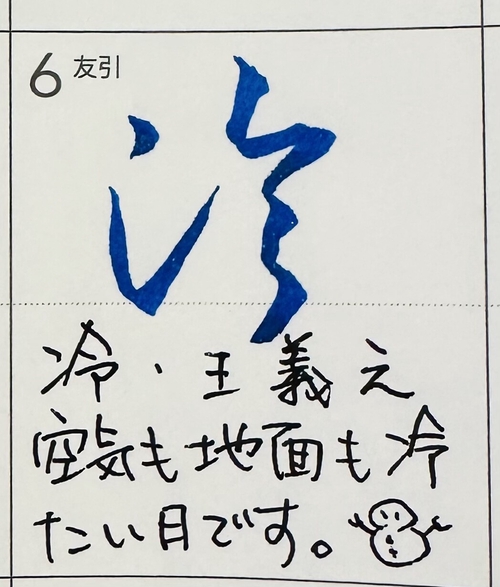 6 友引
冷
冷・王義之
空気も地面も冷
たい日です。